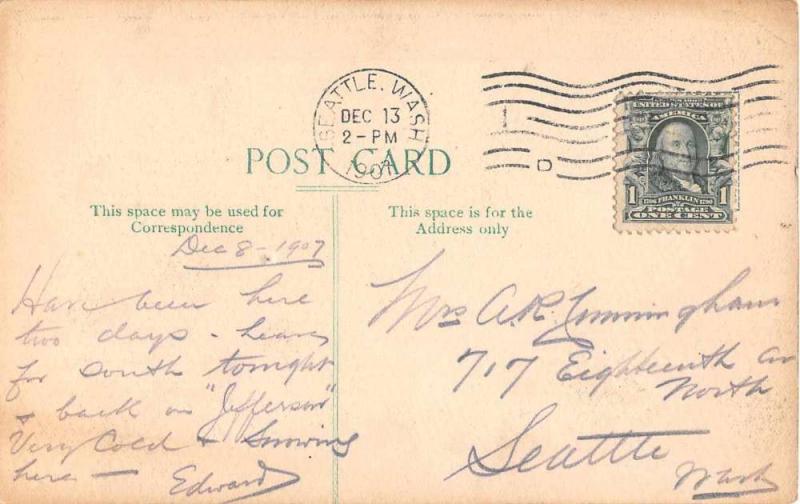 SEATTLE, WASH.
DEC 13
2-PM
1907
UNITED STATES OF
AMERICA
1706 FRANKLIN 1790
POSTAGE
1 ONE CENT 1
D
POST CARD
This space may be used for
Correspondence
This space is for the
Address only
Dec 8 - 1907
Have been here
two days - leave
for south tonight
+ back on "Jefferson"
Very Cold + Snowing
here -
Edward
Mrs A.R. Cunningham
717 Eighteenth av
North
Seattle
Wash